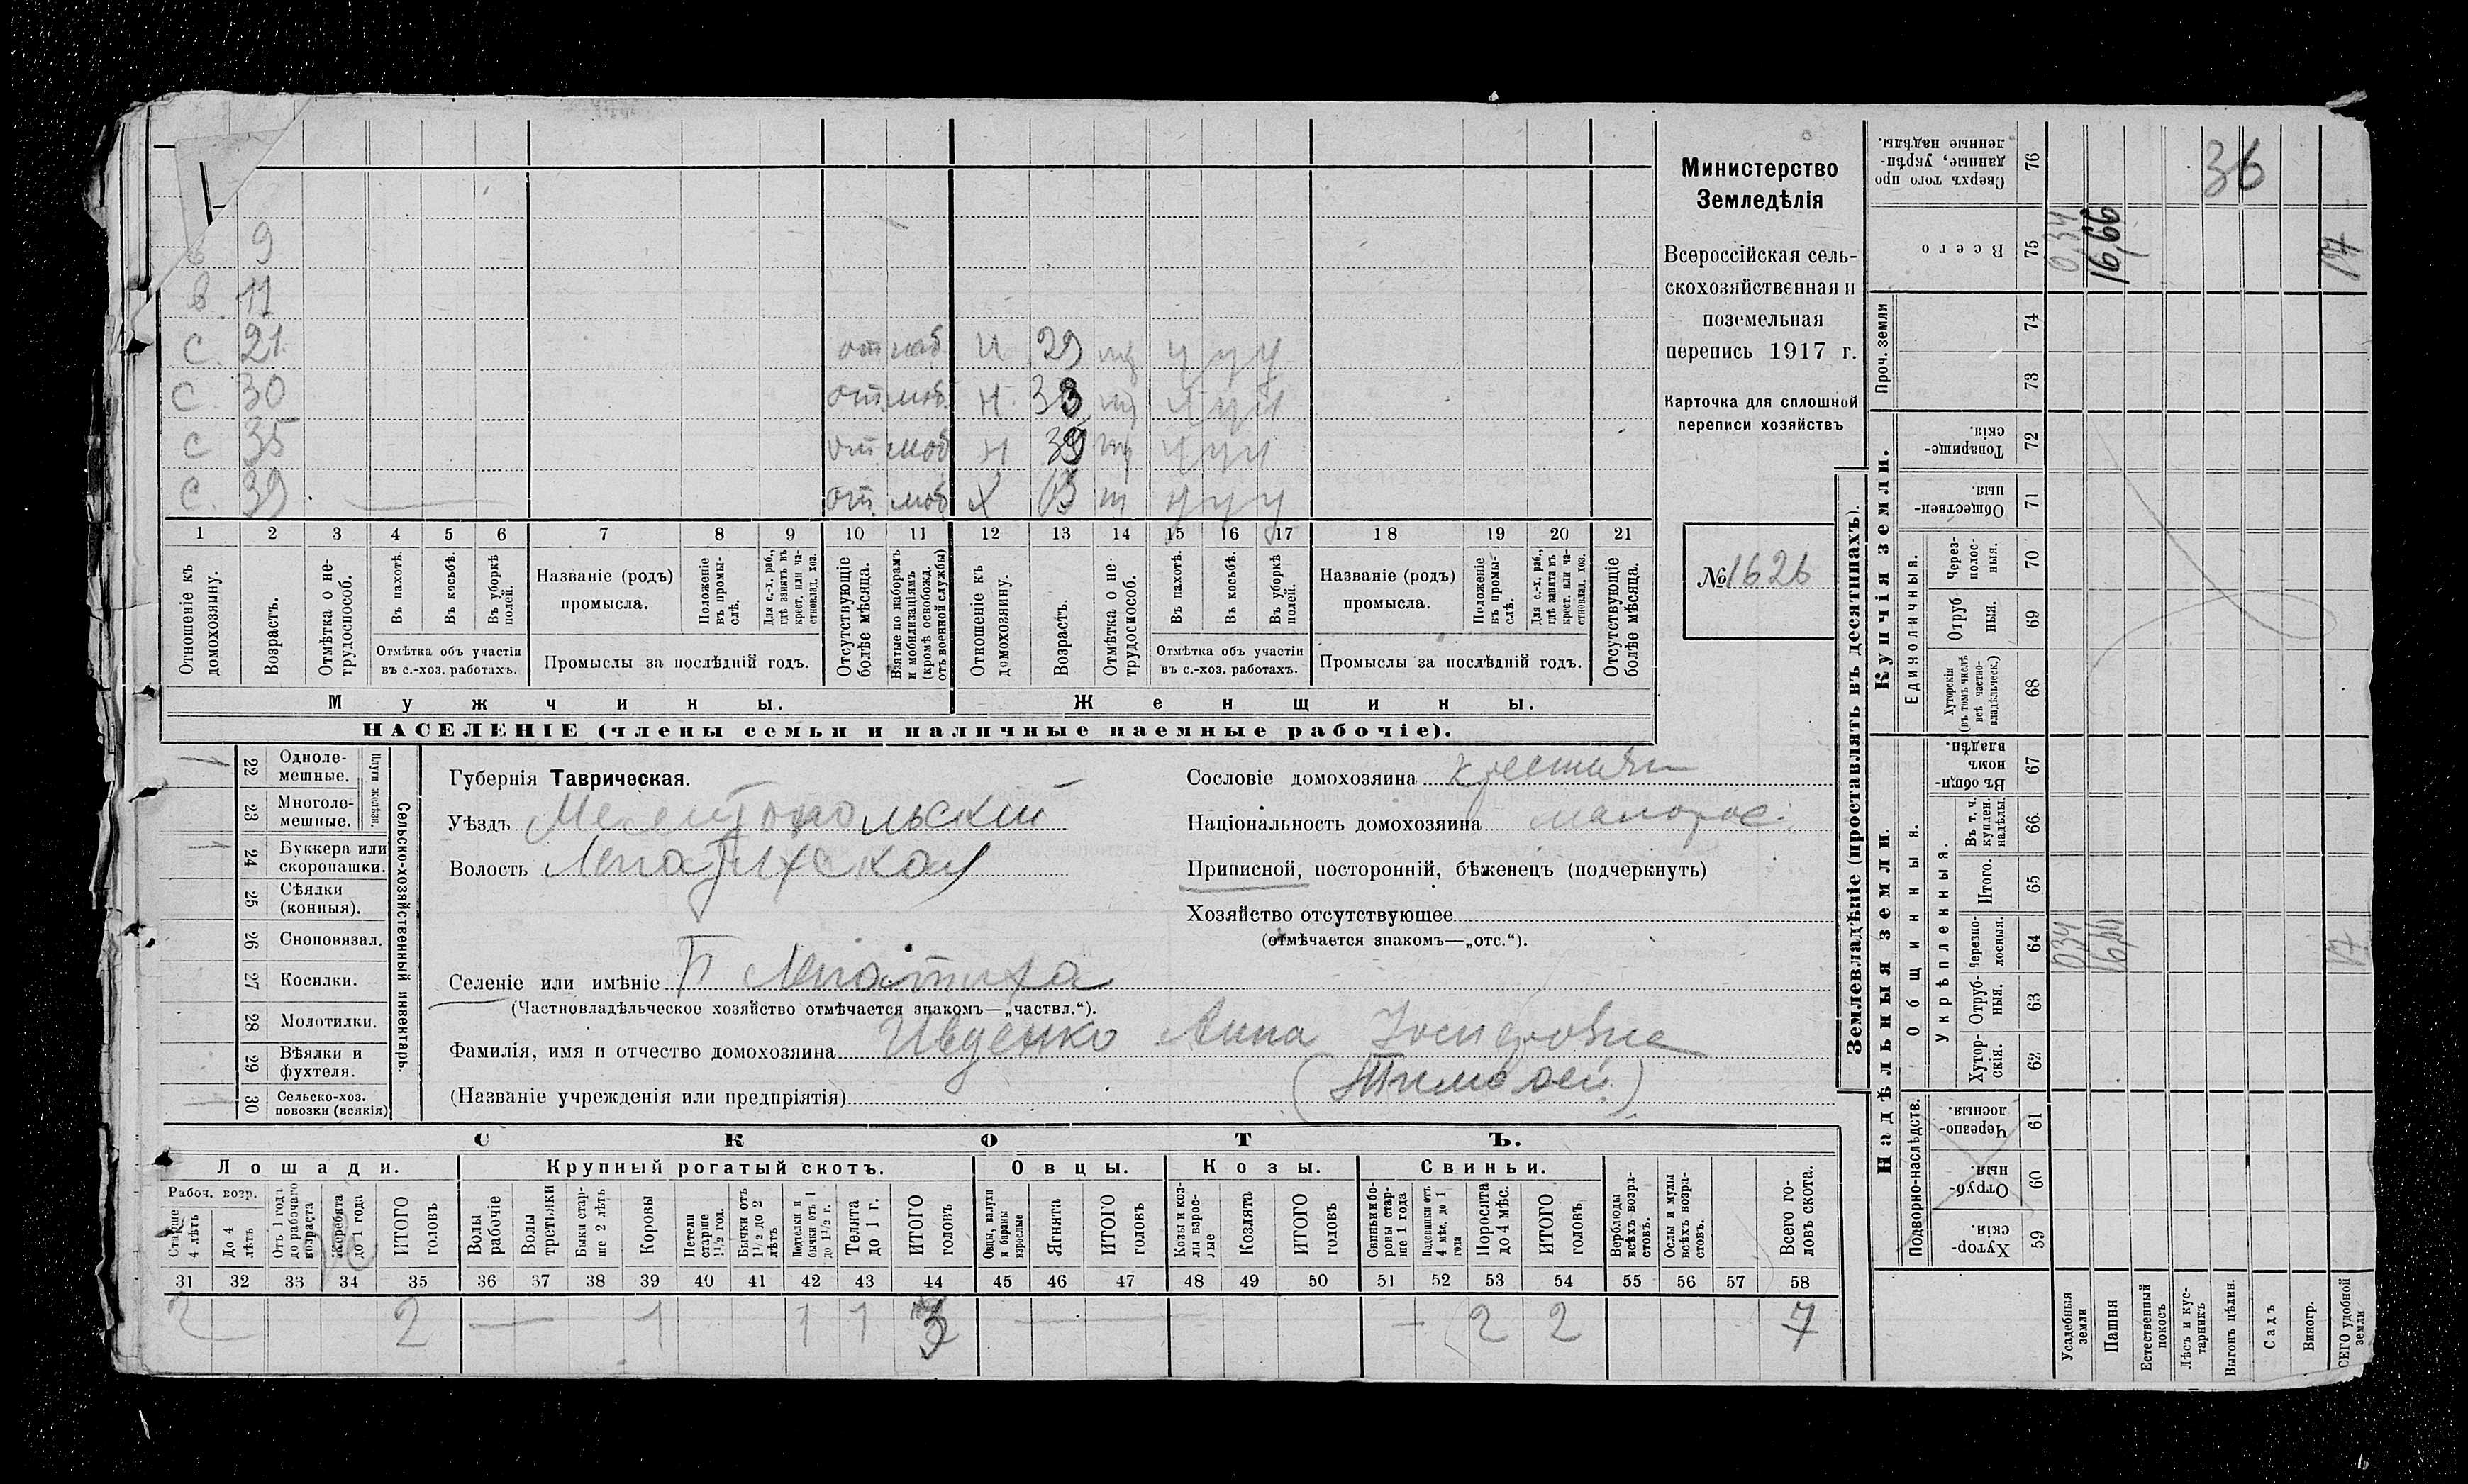 9
в. 11
с. 21 от моб н 29 ч ч ч
с. 30 от. моб. н. 33 ч ч ч
с 35 от. моб н 39 ч ч ч
с. 39 от. моб. х ч ч ч
1 2 3 4 5 6 7 8 9 10 11 12 13 14 15 16 17 18 19 20 21
Отношеніе къ домохозяину.
Возрастъ.
Отмѣтка о нетрудоспособ.
Въ пахотѣ.
Въ косьбѣ.
Въ уборкѣ полей.
Отмѣтка объ участіи
въ с.-хоз. работахъ.
Названіе (родъ)
промысла.
Положеніе въ промыслѣ.
Для с.-х. раб., гдѣ занятъ въ крест. или частновлад. хоз.
Промыслы за послѣдній годъ.
Отсутствующіе болѣе мѣсяца.
Взятые по наборамъ и мобилизаціямъ (кромѣ освобожд. отъ военной службы)
Отношеніе къ домохозяину.
Возрастъ.
Отмѣтка о нетрудоспособ.
Въ пахотѣ.
Въ косьбѣ.
Въ уборкѣ полей.
Отмѣтка объ участіи
въ с.-хоз. работахъ.
Названіе (родъ)
промысла.
Положеніе въ промыслѣ.
Для с.-х. раб., гдѣ занята въ крест. или частновлад. хоз.
Промыслы за послѣдній годъ.
Отсутствующіе болѣе мѣсяца.
Мужчины. Женщины.
НАСЕЛЕНІЕ (члены семьи и наличные наемные рабочіе).
Министерство
Земледѣлія
Всероссійская сель-
скохозяйственная и
поземельная
перепись 1917 г.
Карточка для сплошной
переписи хозяйствъ
№ 1626
22 Одноле-
мешные.
23 Многоле-
мешные.
Плуги желѣзн.
24 Буккера или
скоропашки.
25 Сѣялки
(конныя).
26 Сноповязал.
27 Косилки.
28 Молотилки.
29 Вѣялки и
фухтеля.
30 Сельско-хоз.
повозки (всякія)
Сельско-хозяйственный инвентарь.
Губернія Таврическая.
Уѣздъ Мелитопольский
Волость Лепатихская
Селеніе или имѣніе Б Лепатиха
(Частновладѣльческое хозяйство отмѣчается знакомъ—„частвл.“).
Фамилія, имя и отчество домохозяина Ивденко Анна Іосифовна
(Названіе учрежденія или предпріятія) (Тимофей)
Сословіе домохозяина крестьян
Національность домохозяина малорос.
Приписной, посторонній, бѣженецъ (подчеркнуть)
Хозяйство отсутствующее
(отмѣчается знакомъ—„отс.“).
СКОТЪ.
Лошади. Крупный рогатый скотъ. Овцы. Козы. Свиньи.
Рабоч. возр.
Старше 4 лѣтъ
До 4 лѣтъ
Отъ 1 года до рабочаго возраста
Жеребята до 1 года
ИТОГО головъ
Волы рабочіе
Волы третьяки
Быки старше 2 лѣтъ
Коровы
Нетели старше 1½ год.
Бычки отъ 1½ до 2 лѣтъ
Телки и бычки отъ 1 до 1½ г.
Телята до 1 г.
ИТОГО головъ
Овцы, валухи и бараны взрослые
Ягнята
ИТОГО головъ
Козы и козлы взрослые
Козлята
ИТОГО головъ
Свиньи и боровы старше 1 года
Подсвинки отъ 4 мѣс. до 1 года
Поросята до 4 мѣс.
ИТОГО головъ
Верблюды всѣхъ возрастовъ.
Ослы и мулы всѣхъ возрастовъ.
Всего головъ скота.
31 32 33 34 35 36 37 38 39 40 41 42 43 44 45 46 47 48 49 50 51 52 53 54 55 56 57 58
2 2 — 1 1 1 3 — — 2 2 7
Землевладѣніе (проставлять въ десятинахъ).
Сверхъ того проданные, укрѣпленные надѣлы. 76 36
Всего 75 0,34 16,66 17
Проч. земли 74 73
Купчія земли.
Товарищескія. 72
Общественныя. 71
Единоличныя.
Черезполосныя. 70
Отрубныя. 69
Хуторскія (въ томъ числѣ всѣ частновладѣльческ.) 68
Надѣльныя земли.
Общинныя.
Въ общинномъ владѣн. 67
Укрѣпленныя.
Въ т. ч. куплен. надѣлы. 66
Итого. 65
Черезполосныя. 64 0,34 17
Отрубныя. 63
Хуторскія. 62
Подворно-наслѣдств.
Черезполосныя. 61
Отрубныя. 60
Хуторскія. 59
Усадебныя земли
Пашня
Естественный покосъ
Лѣсъ и кустарникъ
Выгонъ цѣлин.
Садъ
Виногр.
ВСЕГО удобной земли